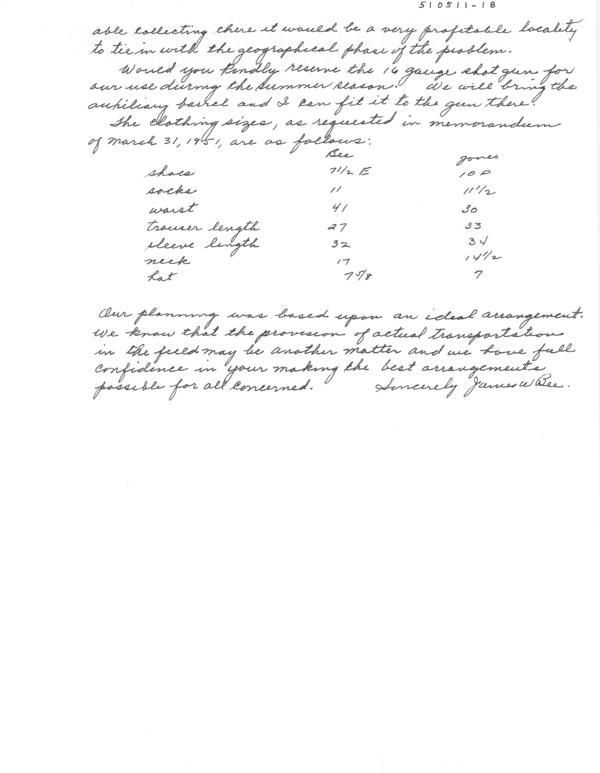 510511-18
able collecting there it would be a very profitable locality
to tie in with the geographical phase of the problem.
Would you kindly reserve the 16 gauge shot gun for
our use during the summer season. We will bring the
auxiliary barrel and I can fit it to the gun there.
The clothing sizes, as requested in memorandum
of March 31, 1951, are as follows:
Bee Jones
shoes 7 1/2 E 10 D
socks 11 11 1/2
waist 41 30
trouser length 27 33
sleeve length 32 34
neck 17 14 1/2
hat 7 5/8 7
Our planning was based upon an ideal arrangement.
We know that the provision of actual transportation
in the field may be another matter and we have full
confidence in your making the best arrangements
possible for all concerned. Sincerely James W Bee.